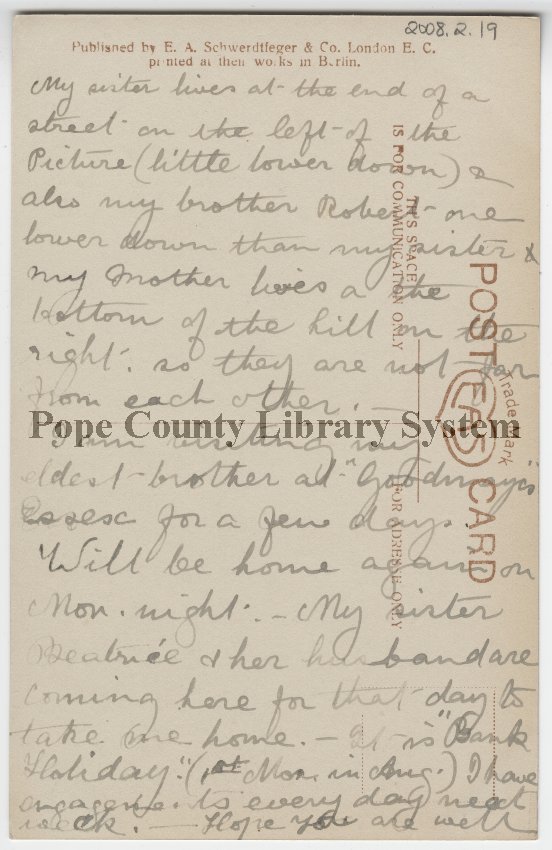 2008.2.19
Published by E. A. Schwerdtfeger & Co. London E. C.
printed at their works in Berlin.
My sister lives at the end of a
street on the left of the
Picture (little lower down) &
also my brother Robert one
lower down than my sister &
my Mother lives a the
bottom of the hill on the
right. so they are not far
from each other. —
I am visiting my
eldest brother at "Goodmayes"
Essex for a few days.
Will be home again on
Mon. night. — My sister
Beatrice & her husband are
coming here for that day to
take me home. — It is "Bank
Holiday." (1st Mon. in Aug.) I have
engagements every day next
week. — Hope you are well
THIS SPACE
IS FOR COMMUNICATION ONLY
POST CARD
EAS
Trade Mark
FOR ADRESSE ONLY
Pope County Library System